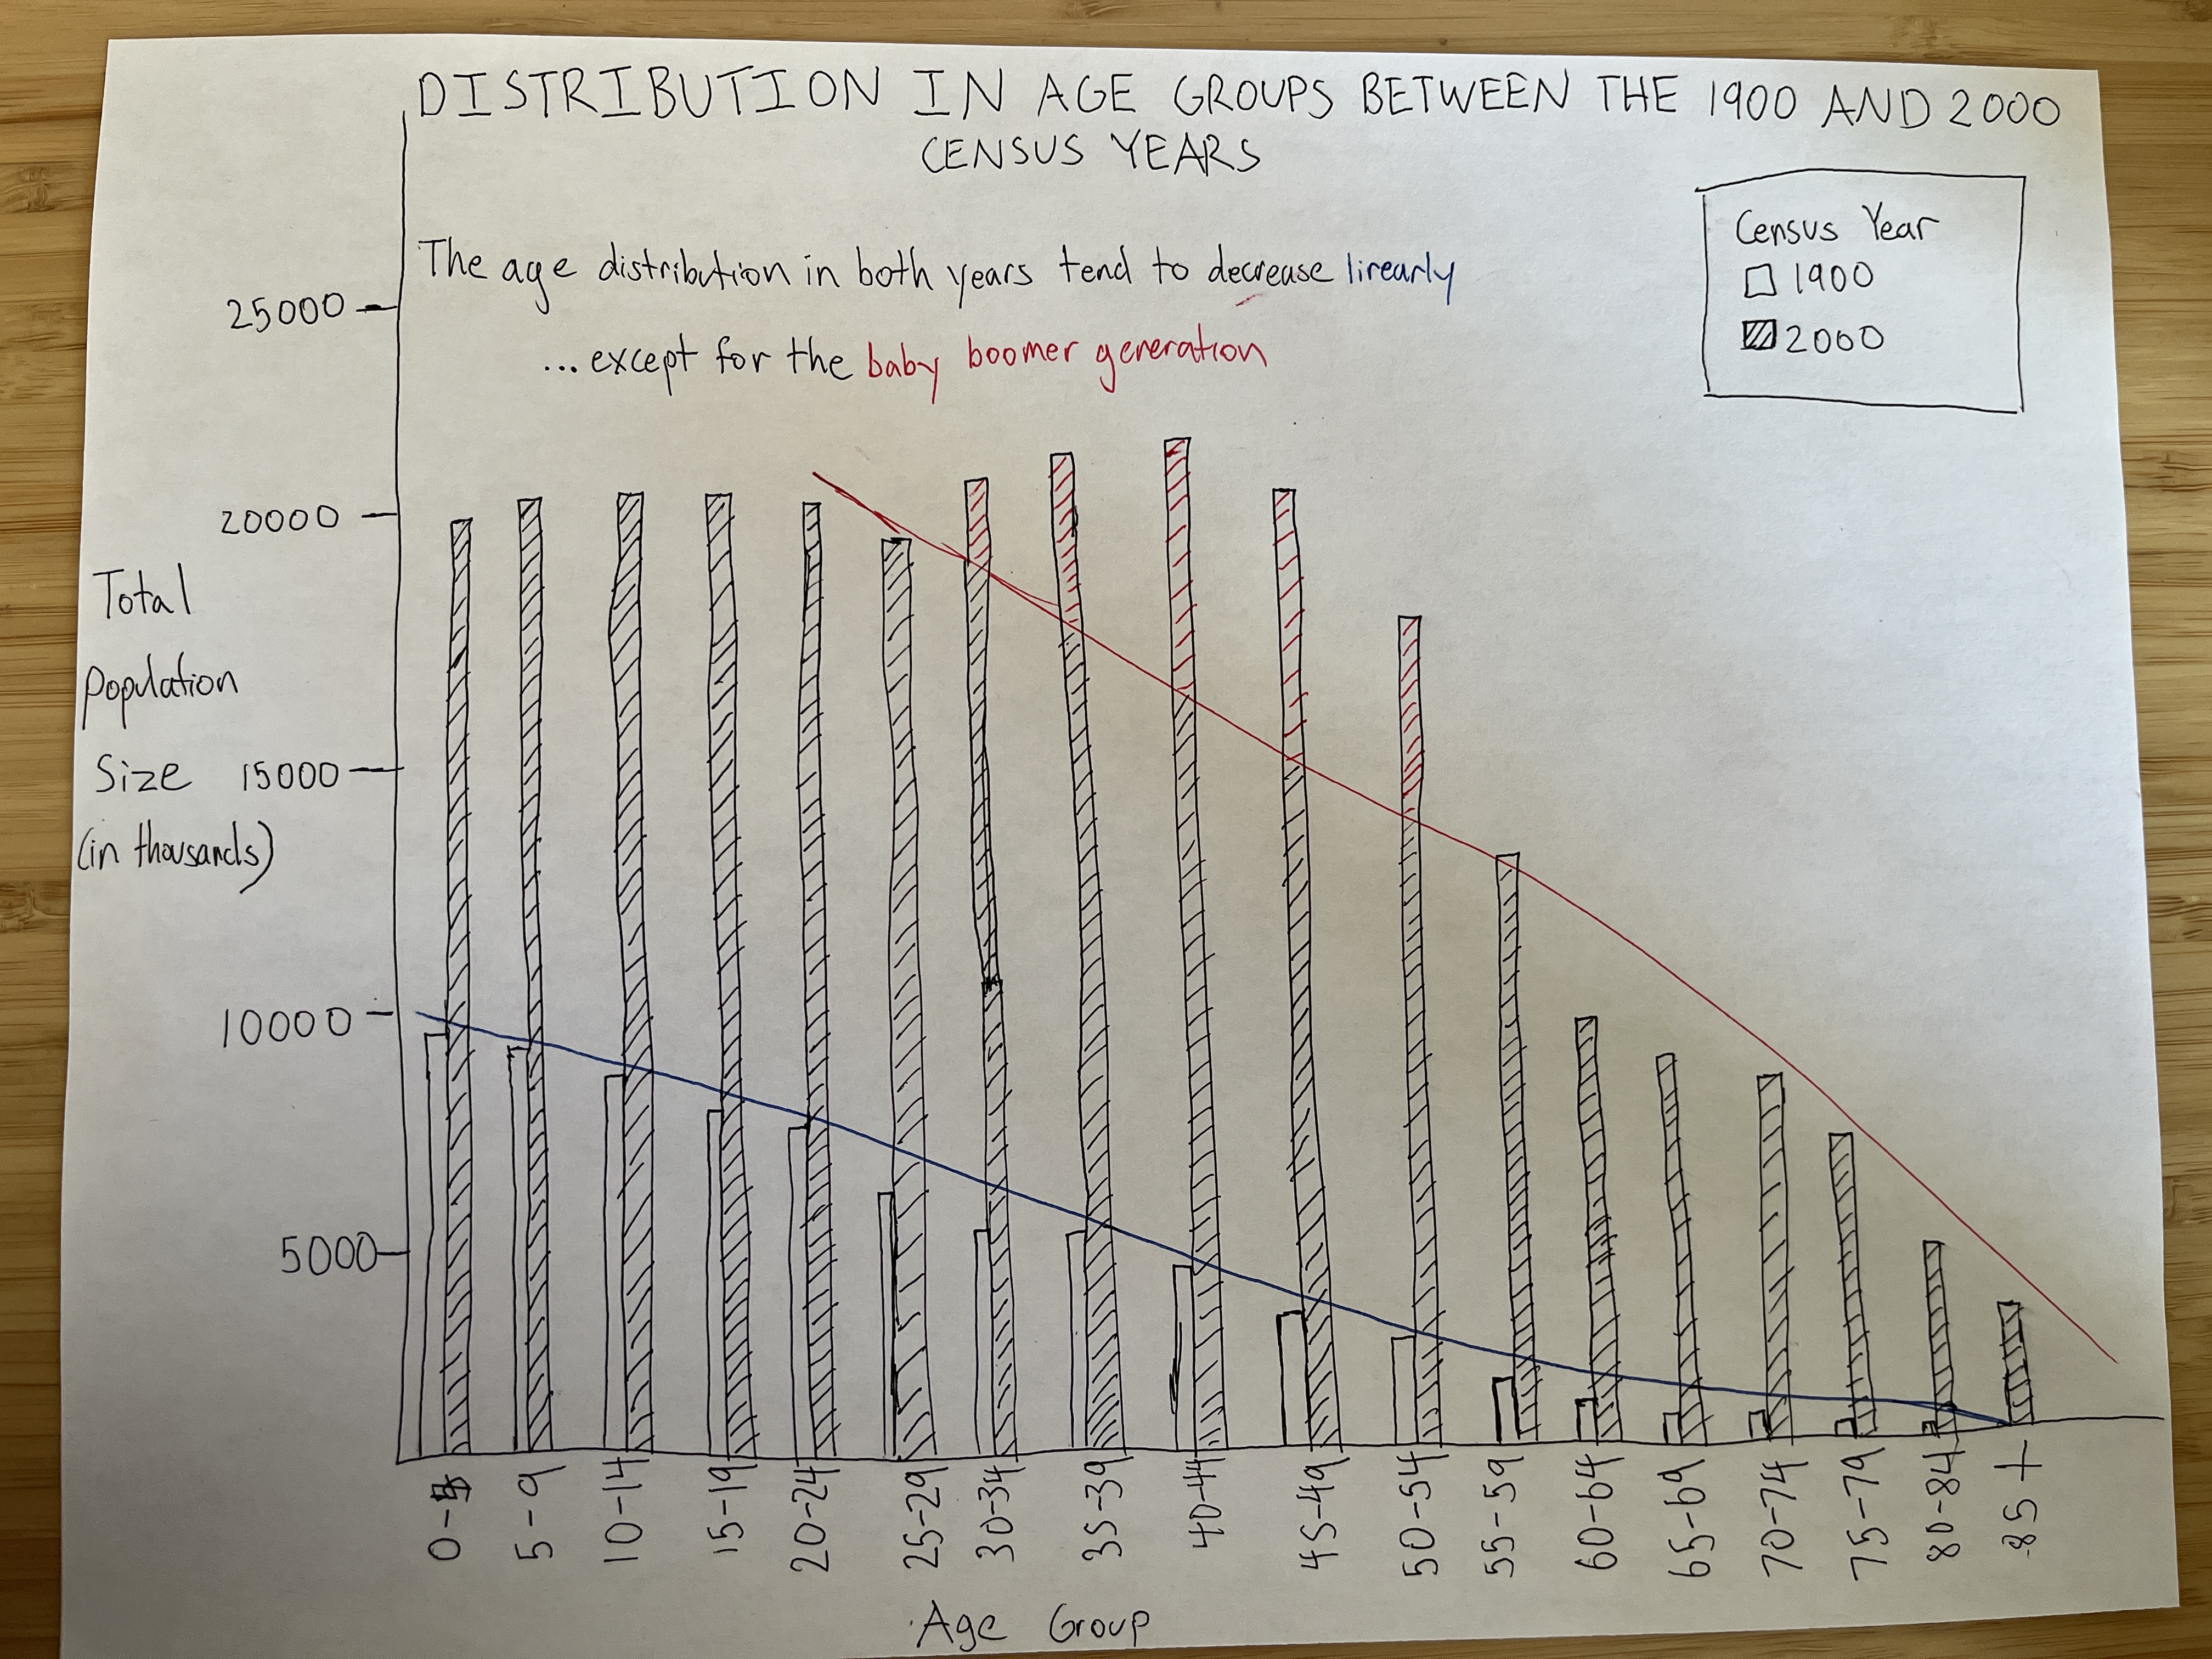 DISTRIBUTION IN AGE GROUPS BETWEEN THE 1900 AND 2000
CENSUS YEARS
Census Year
1900
2000
The age distribution in both years tend to decrease linearly
...except for the baby boomer generation
25000
20000
15000
10000
5000
Total
Population
Size
(in thousands)
0-
5-9
10-14
15-19
20-24
25-29
30-34
35-39
40-44
45-49
50-54
55-59
60-64
65-69
70-74
75-79
80-84
85+
Age Group